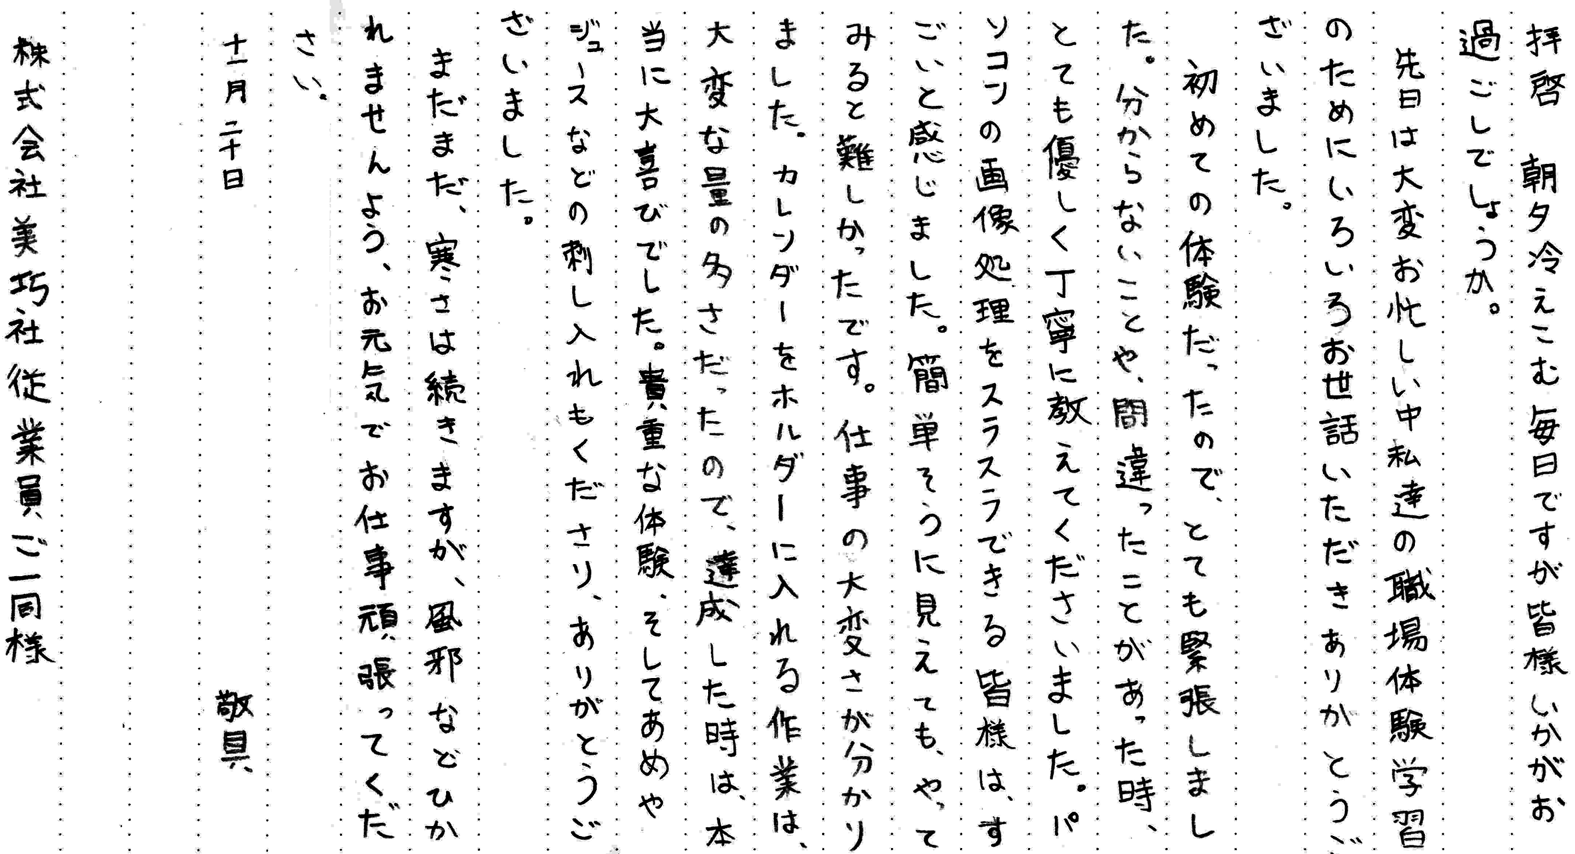 拝啓　朝夕冷えこむ毎日ですが皆様いかがお
過ごしでしょうか。
先日は大変お忙しい中私達の職場体験学習
のためにいろいろお世話いただきありがとうご
ざいました。
初めての体験だったので、とても緊張しまし
た。分からないことや、間違ったことがあった時、
とても優しく丁寧に教えてくださいました。パ
ソコンの画像処理をスラスラできる皆様は、す
ごいと感じました。簡単そうに見えても、やって
みると難しかったです。仕事の大変さが分かり
ました。カレンダーをホルダーに入れる作業は、
大変な量の多さだったので、達成した時は、本
当に大喜びでした。貴重な体験、そしてあめや
ジュースなどの刺し入れもくださり、ありがとうご
ざいました。
まだまだ、寒さは続きますが、風邪などひか
れませんよう、お元気でお仕事頑張ってくだ
さい。
十一月二十日　敬具
株式会社美巧社従業員ご一同様